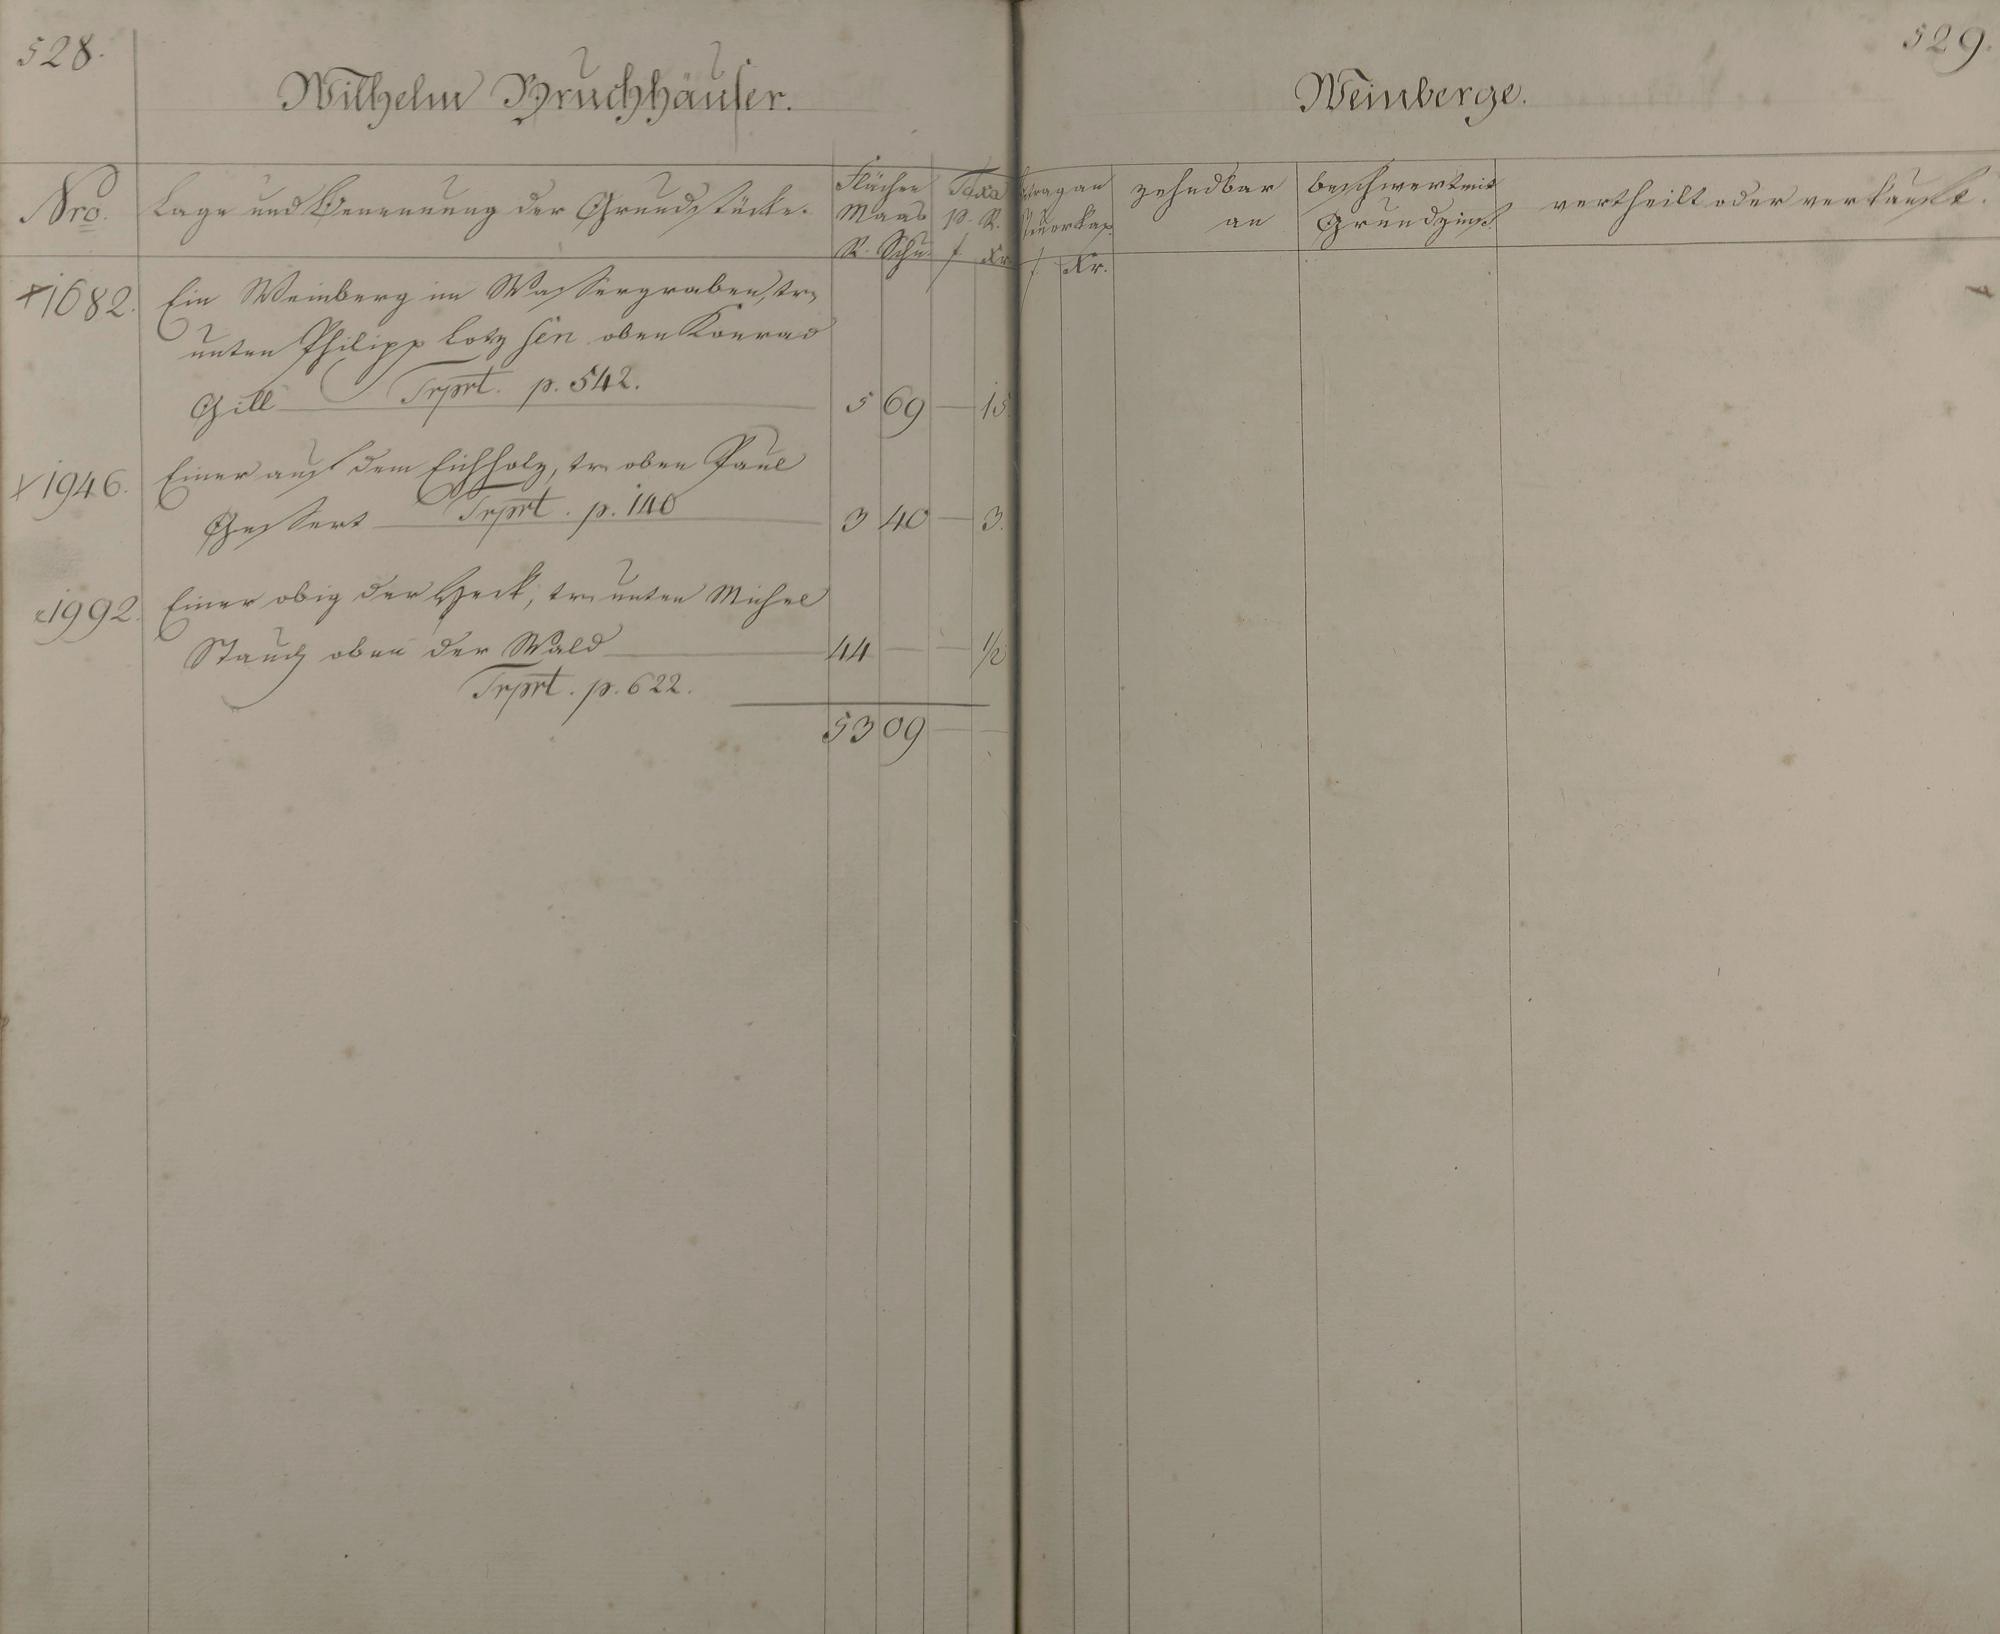 528.
Wilhelm Bruchhäuser.
Nro.
Lage und Benennung der Grundstücke.
Flächen
Maas
R. Schu.
Taxa
p. R.
f Xr.
✗1682. Ein Weinberg im Wassergraben, tr.
unten Philipp Lotz sen oben Konrad
Gill Trprt. p. 542. 5 69 — 15.
✗1946. Einer auf dem Eichholz, tr. oben Paul
Gessert Trprt. p. 140 3 40 — 3.
1992. Einer obig der Heck, tr. unten Michel
Stauch oben der Wald 44 — — 1/2
Trprt. p. 622.
53 09 — —
529.
Weinberge.
trag an
Steuerkap.
f Xr.
zehndbar
an
beschwert mit
Grundzins.
vertheilt oder verkauft.